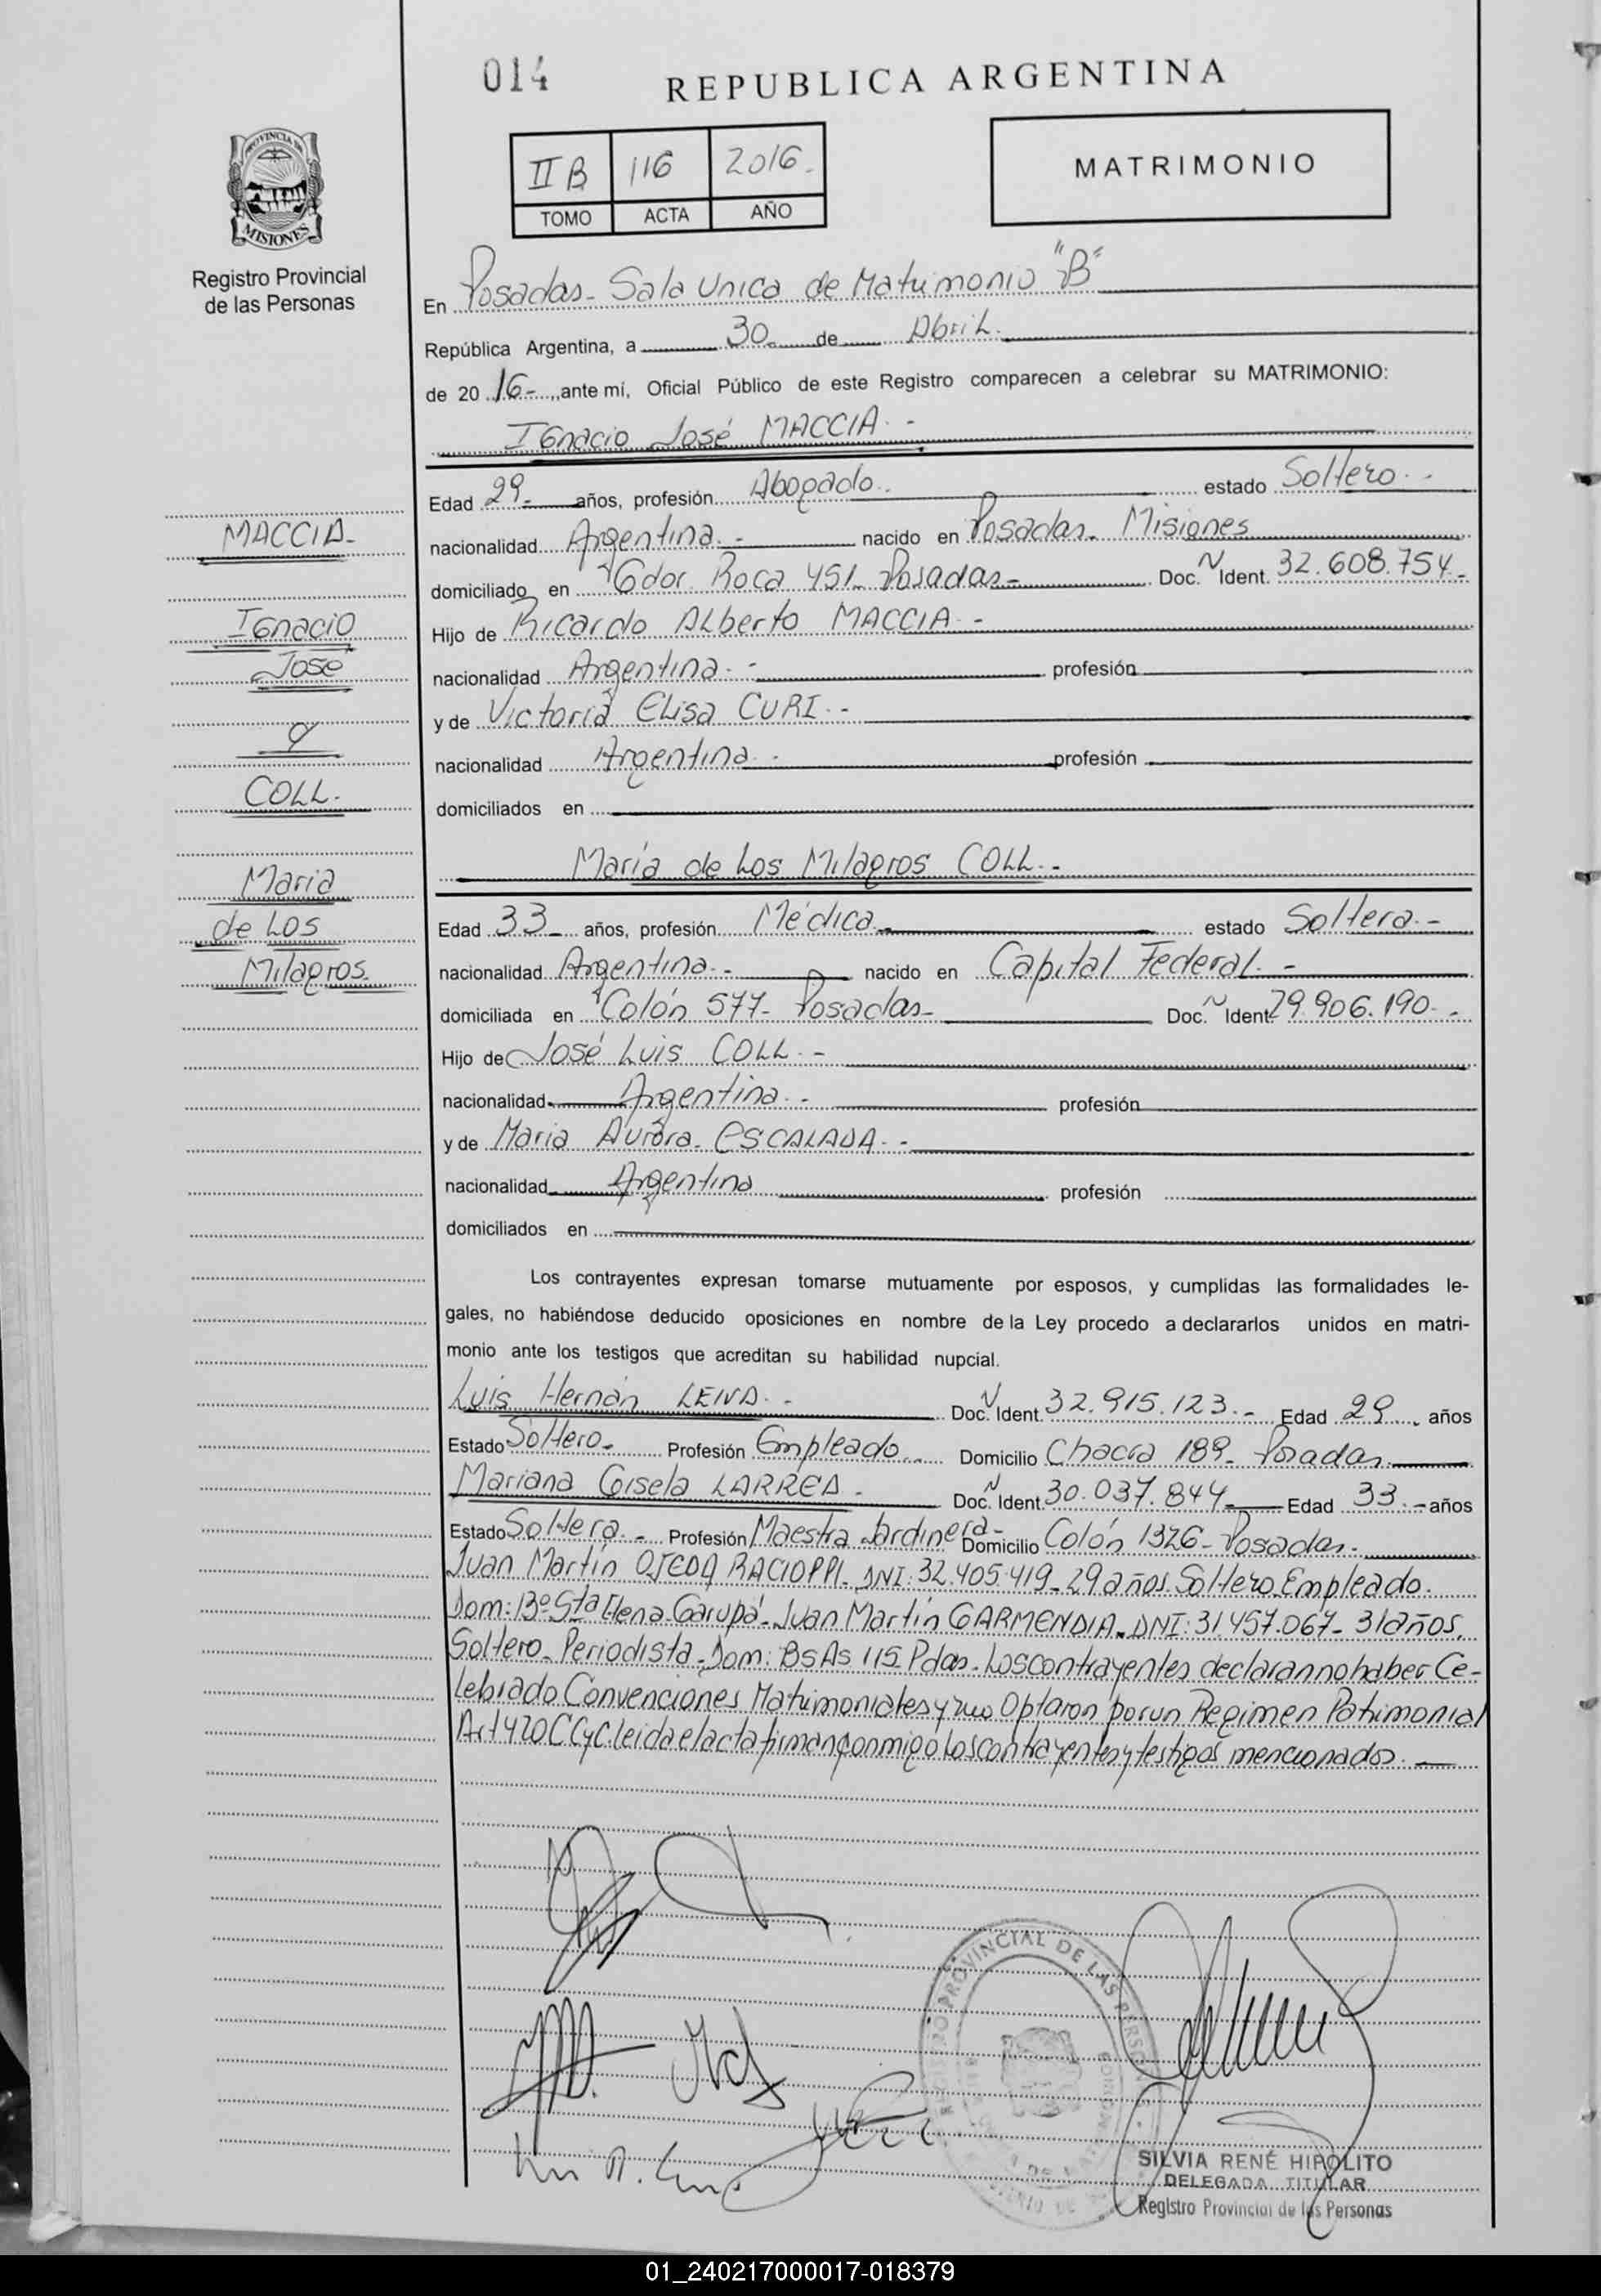 014
REPUBLICA ARGENTINA
PROVINCIA DE
MISIONES
Registro Provincial
de las Personas
II B 116 2016.
TOMO ACTA AÑO
MATRIMONIO
En Posadas - Sala Unica de Matrimonio "B"
República Argentina, a 30 de Abril.
de 2016-, ante mí, Oficial Público de este Registro comparecen a celebrar su MATRIMONIO:
Ignacio José MACCIA.-
Edad 29- años, profesión Abogado. estado Soltero.-
MACCIA-
nacionalidad Argentina.- nacido en Posadas- Misiones
domiciliado en Gdor. Roca 451- Posadas- Doc. N Ident. 32.608.754-
Ignacio
Hijo de Ricardo Alberto MACCIA.-
José
nacionalidad Argentina.- profesión
y de Victoria Elisa CURI.-
y
nacionalidad Argentina.- profesión
COLL.
domiciliados en
María de Los Milagros COLL.-
Maria
de Los
Edad 33- años, profesión Médica.- estado Soltera.-
Milagros.
nacionalidad Argentina.- nacido en Capital Federal.-
domiciliada en Colón 577- Posadas- Doc. N Ident. 29.906.190.-
Hijo de José Luis COLL.-
nacionalidad Argentina.- profesión
y de Maria Aurora ESCALADA.-
nacionalidad Argentina profesión
domiciliados en
Los contrayentes expresan tomarse mutuamente por esposos, y cumplidas las formalidades le-
gales, no habiéndose deducido oposiciones en nombre de la Ley procedo a declararlos unidos en matri-
monio ante los testigos que acreditan su habilidad nupcial.
Luis Hernán LEIVA.- Doc. N Ident. 32.915.123.- Edad 29 años
Estado Soltero- Profesión Empleado.. Domicilio Chacra 189- Posadas.
Mariana Gisela LARREA- Doc. N Ident. 30.037.844- Edad 33.- años
Estado Soltera.- Profesión Maestra Jardinera- Domicilio Colón 1326- Posadas.
Juan Martín OJEDA RACIOPPI- DNI: 32.405.419- 29 años. Soltero. Empleado.
Dom: Bº Sta Elena- Garupá- Juan Martín GARMENDIA- DNI: 31.457.067- 31 años.
Soltero- Periodista- Dom: Bs As 115 Pdas- Los contrayentes declaran no haber Ce-
lebrado Convenciones Matrimoniales y no Optaron por un Regimen Patrimonial
Art 420 CCyC. leida el acta firman conmigo los contrayentes y testigos mencionados.
REGISTRO PROVINCIAL DE LAS PERSONAS
SILVIA RENÉ HIPOLITO
DELEGADA TITULAR
Registro Provincial de las Personas
01_240217000017-018379